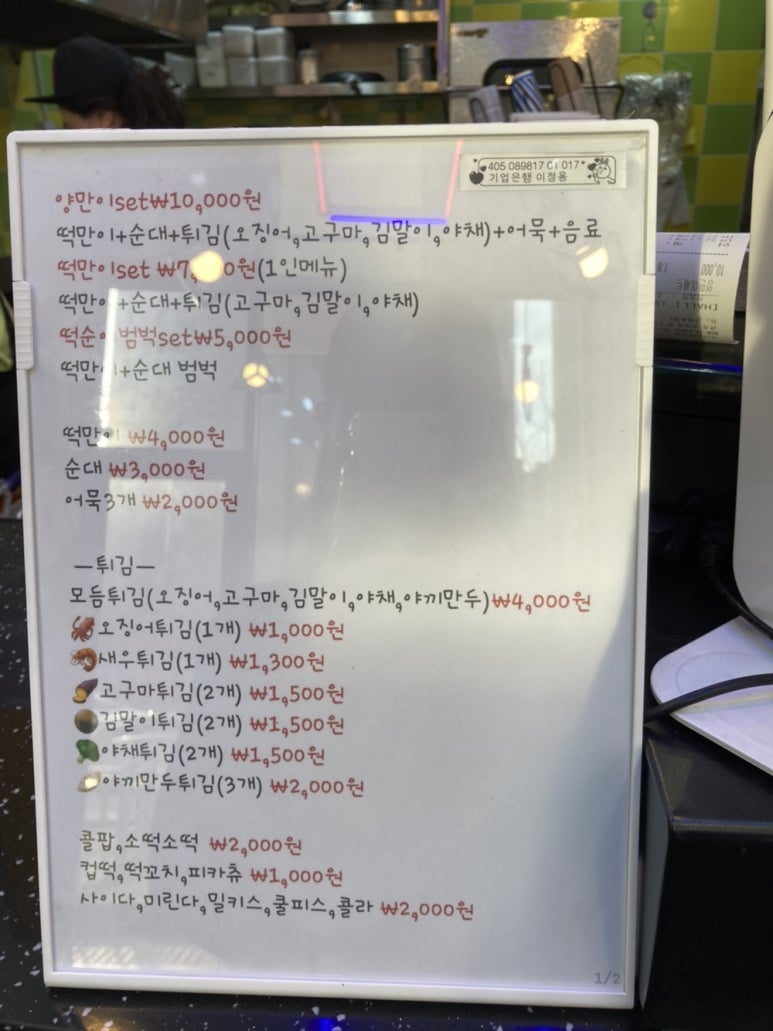 405 089817 01 017
기업은행 이정용
양만이set₩10,000원
떡만이+순대+튀김(오징어,고구마,김말이,야채)+어묵+음료
떡만이set (1인메뉴)
떡만이+순대+튀김(고구마,김말이,야채)
떡순이 범벅set₩5,000원
떡만이+순대 범벅
떡만이 ₩4,000원
순대 ₩3,000원
어묵3개 ₩2,000원
—튀김—
모듬튀김(오징어,고구마,김말이,야채,야끼만두)₩4,000원
오징어튀김(1개) ₩1,000원
새우튀김(1개) ₩1,300원
고구마튀김(2개) ₩1,500원
김말이튀김(2개) ₩1,500원
야채튀김(2개) ₩1,500원
야끼만두튀김(3개) ₩2,000원
콜팝,소떡소떡 ₩2,000원
컵떡,떡꼬치,피카츄 ₩1,000원
사이다,미린다,밀키스,쿨피스,콜라 ₩2,000원
1/2
[HALL]
10,000